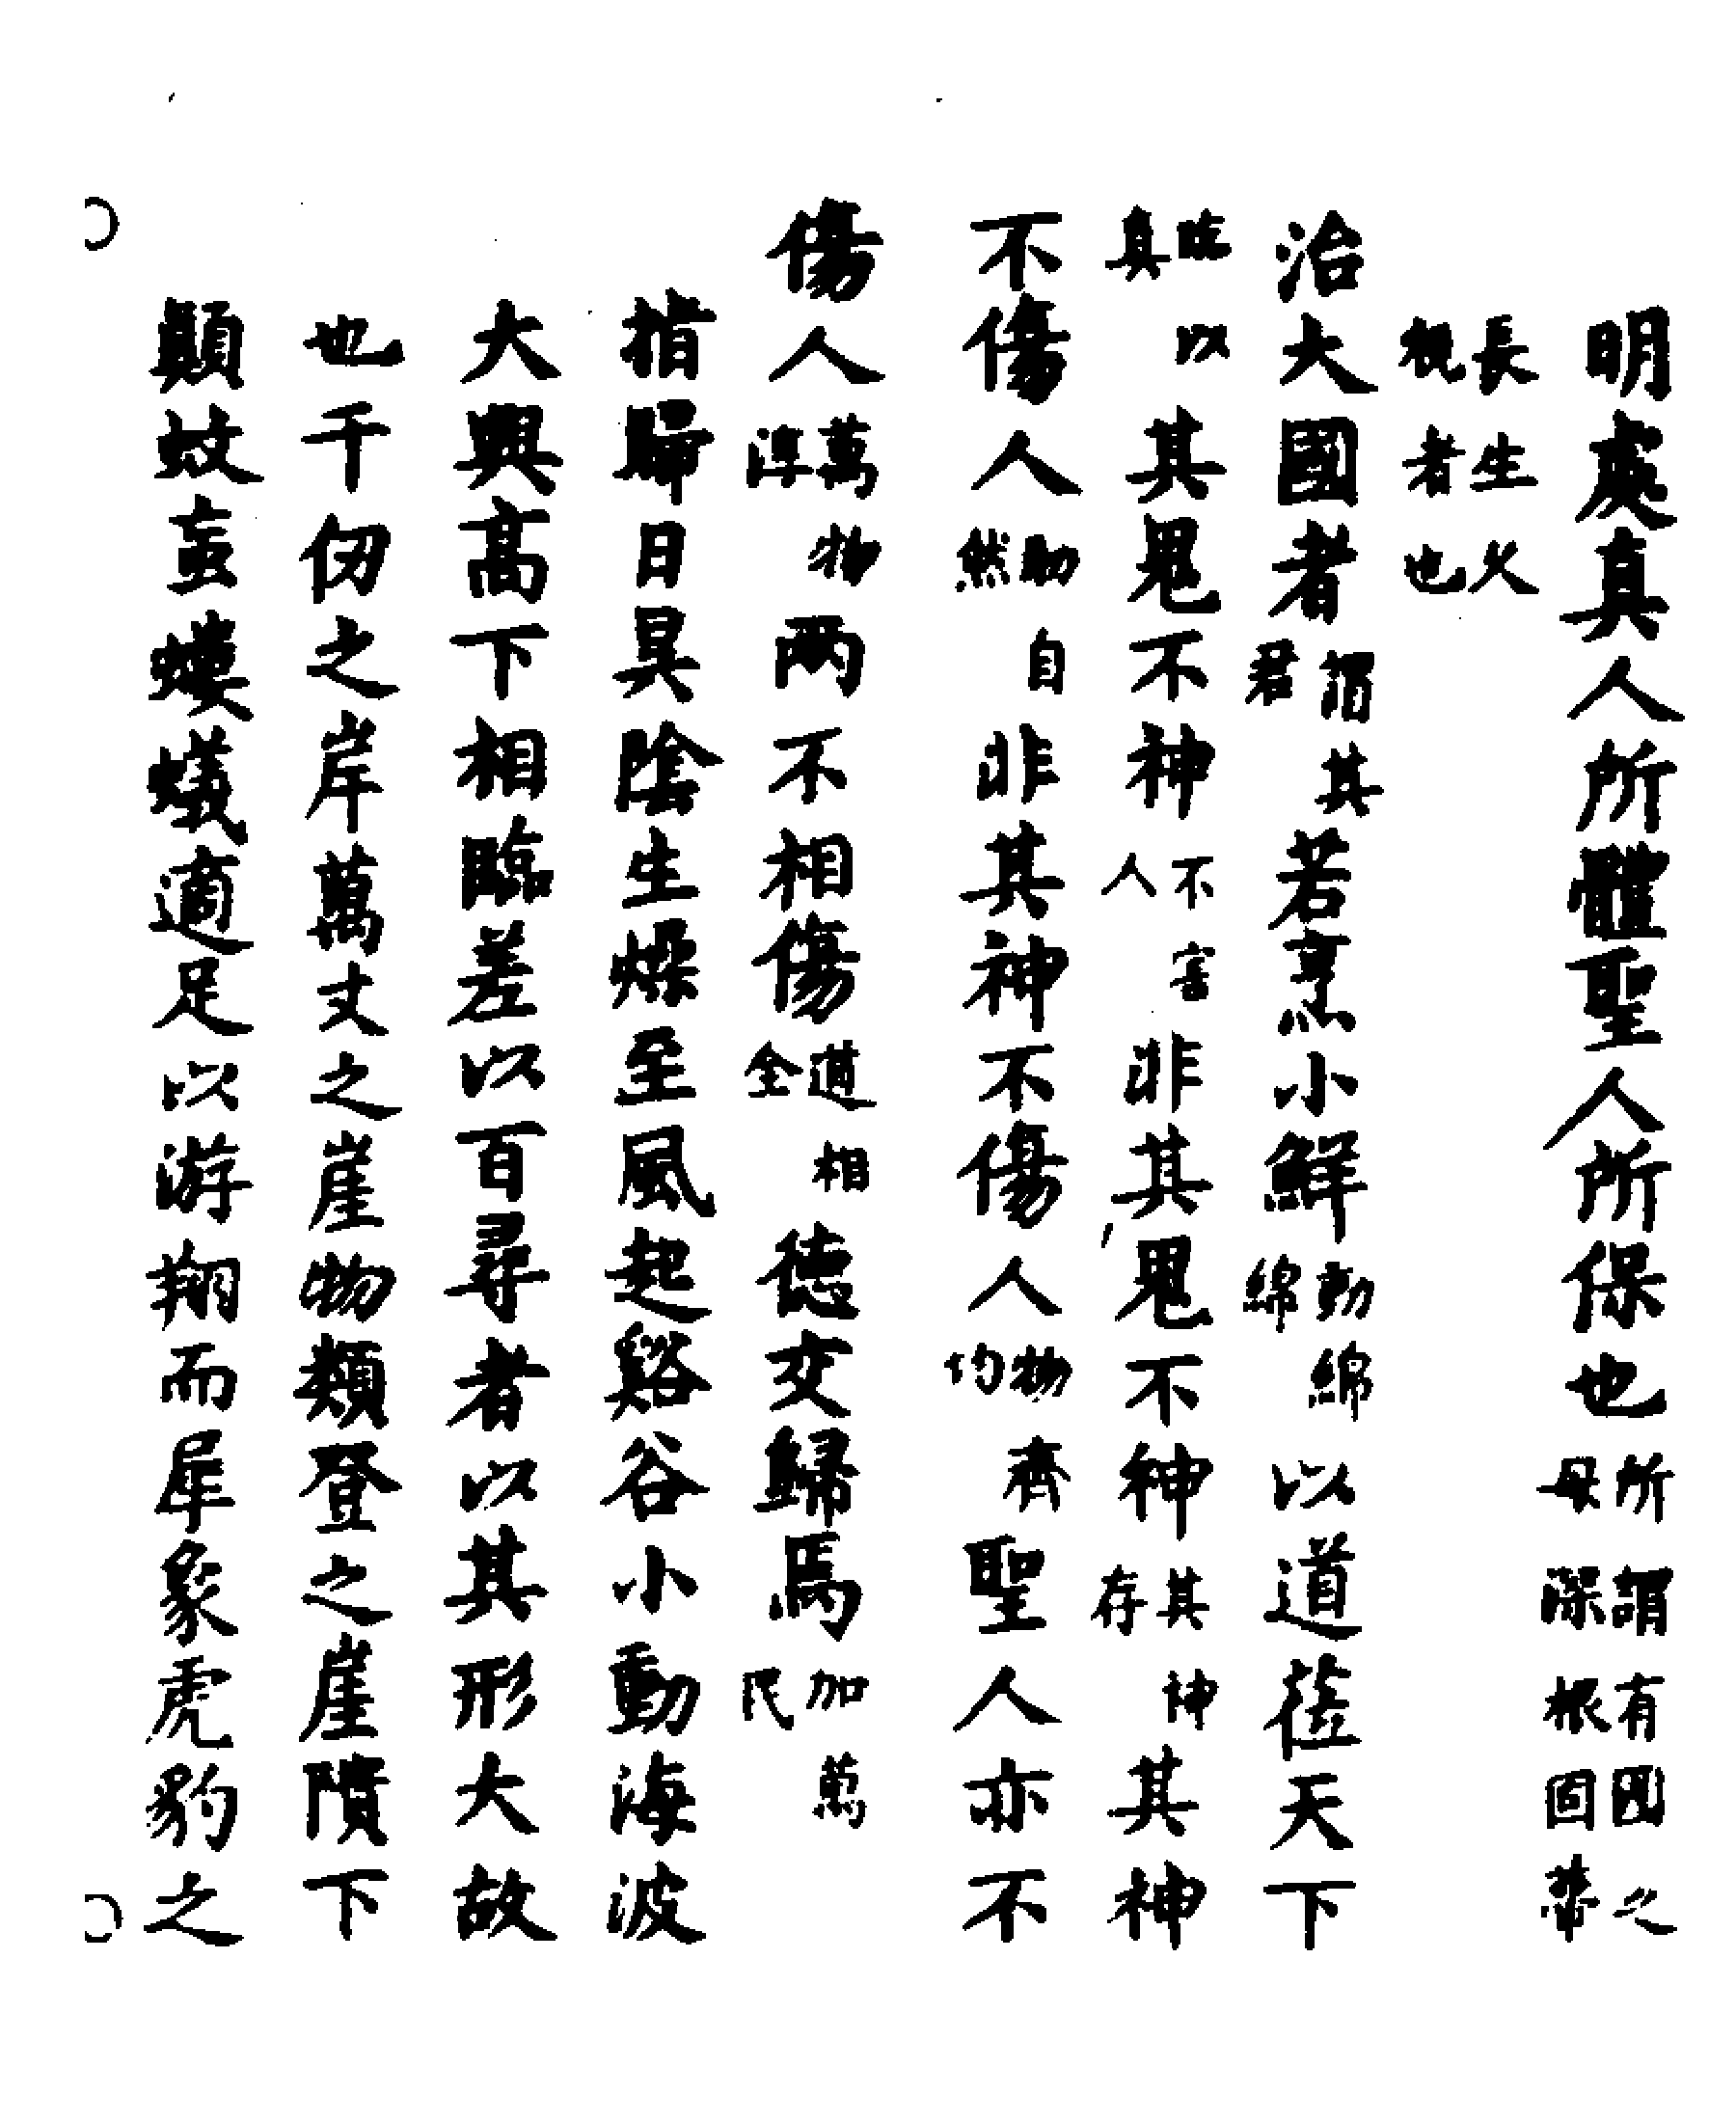 明處真人所體聖人所保也所謂有國之母深根固蔕
長生久視者也
治大國者謂其君若烹小鮮動綿綿以道蒞天下
以真以其鬼不神不害人非其鬼不神其神存其神
不傷人助自然非其神不傷人物齊均聖人亦不
傷人萬物淳兩不相傷道相全德交歸焉加萬民
指歸曰具陰生燥至風起谿谷小動海波
大興高下相臨差以百尋者以其形大故
也千仞之岸萬丈之崖物類登之崖隤下
顛蚊䖟螻蟻適足以游翔而犀象虎豹之